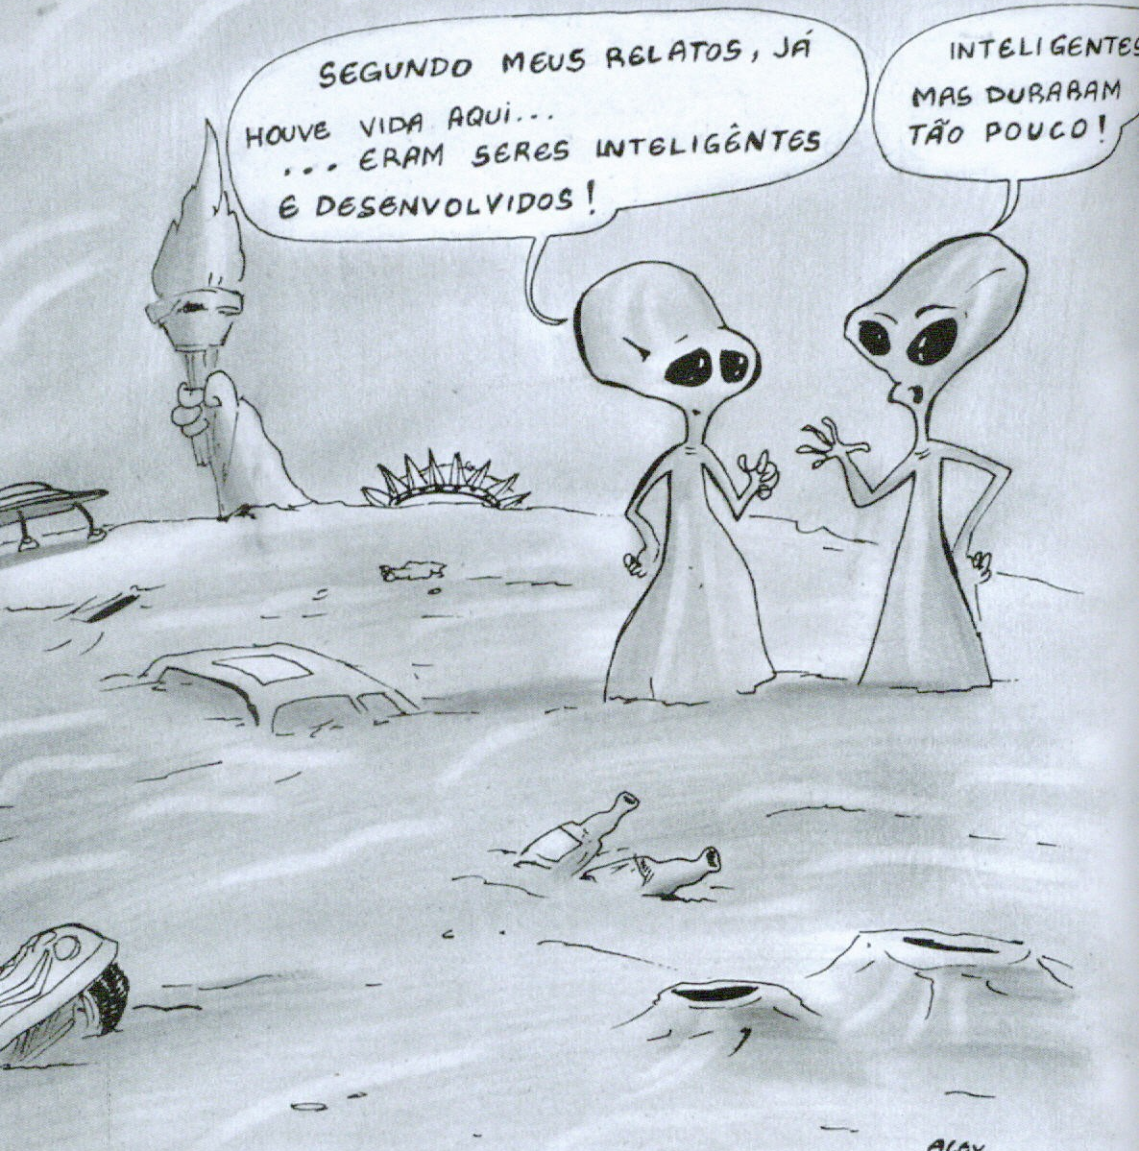 SEGUNDO MEUS RELATOS, JÁ
HOUVE VIDA AQUI...
... ERAM SERES INTELIGÊNTES
E DESENVOLVIDOS!
INTELIGENTES
MAS DURARAM
TÃO POUCO!